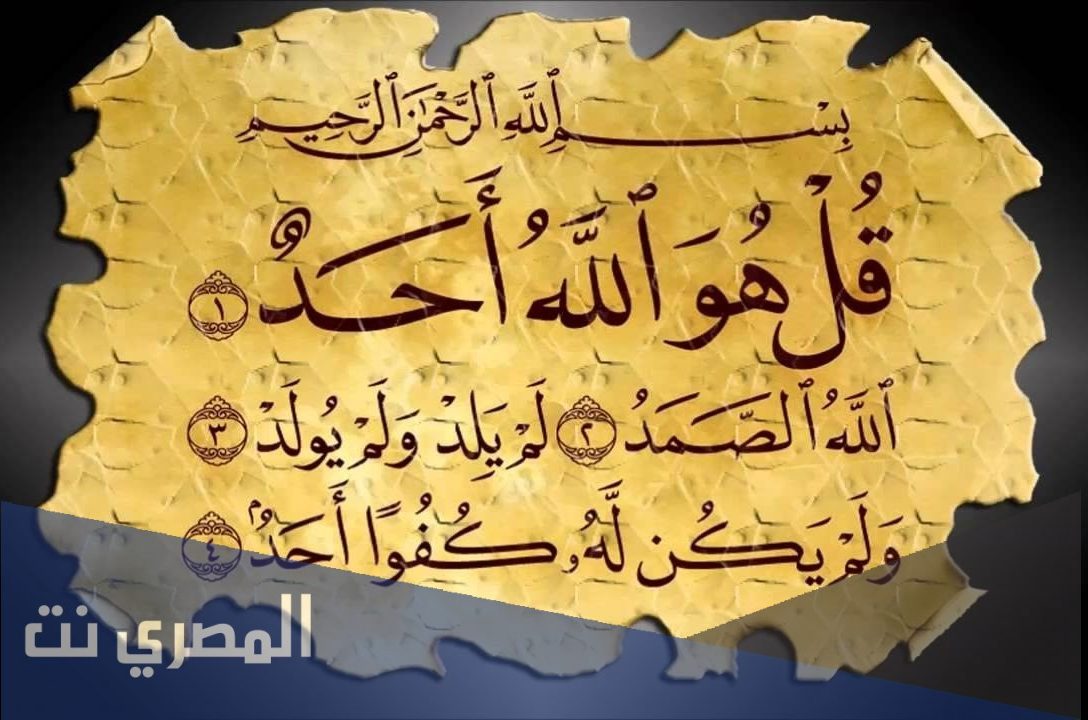 بِسْمِ ٱللَّهِ ٱلرَّحْمَٰنِ ٱلرَّحِيمِ
قُلْ هُوَ ٱللَّهُ أَحَدٌ ١
ٱللَّهُ ٱلصَّمَدُ ٢ لَمْ يَلِدْ وَلَمْ يُولَدْ ٣
وَلَمْ يَكُن لَّهُۥ كُفُوًا أَحَدُۢ ٤
المصري نت